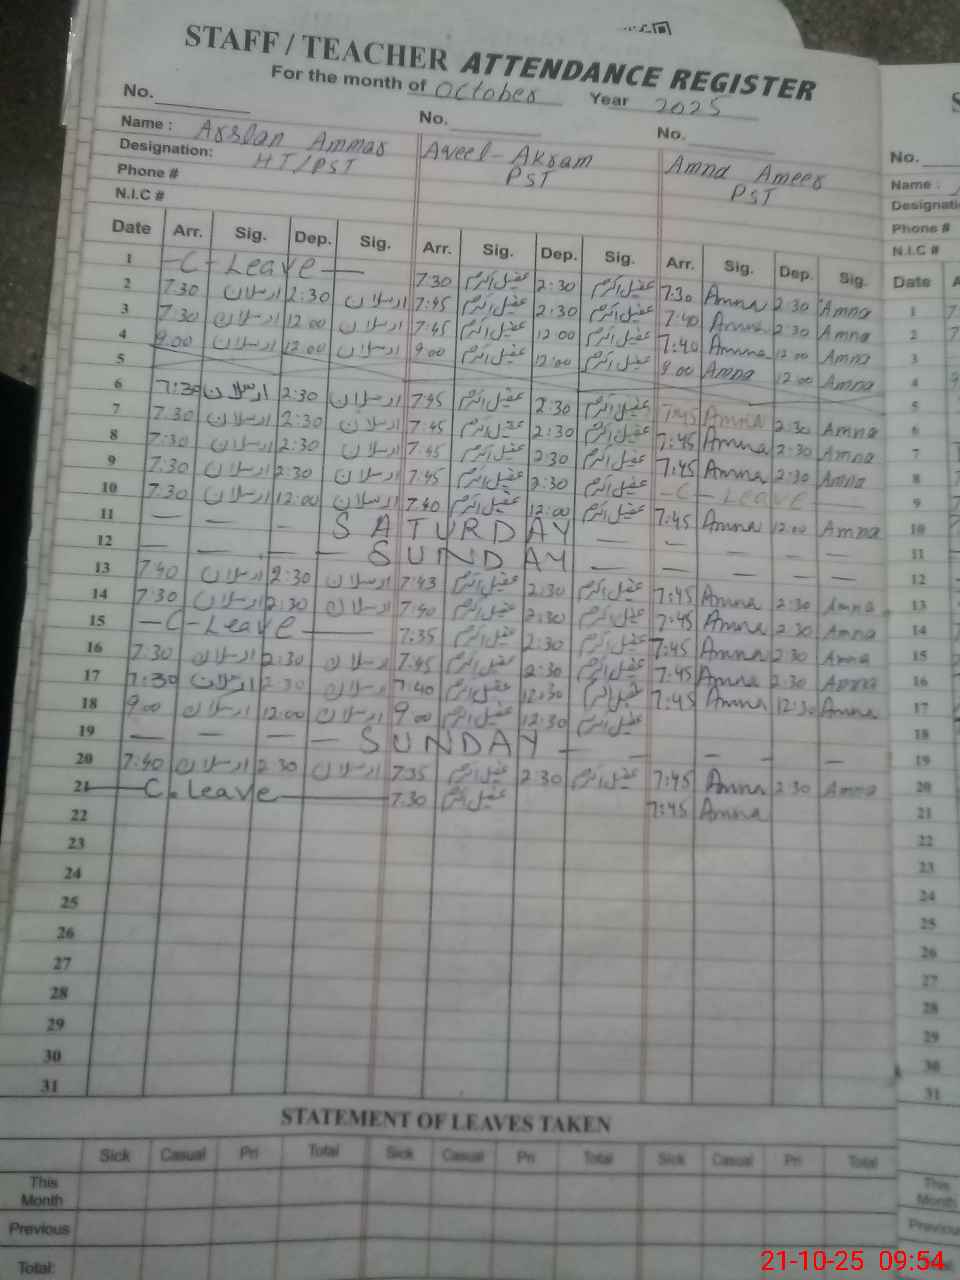 STAFF / TEACHER ATTENDANCE REGISTER
For the month of October Year 2025
No. No. No. No.
Name : Arslan Ammar Aqeel-Akram Amna Ameer Name :
Designation: HT/PST PST PST
Phone # Phone #
N.I.C # N.I.C #
Date Arr. Sig. Dep. Sig. Arr. Sig. Dep. Sig. Arr. Sig. Dep. Sig. Date
1 -C-Leave- 7:30 عقیل اکرم 2:30 عقیل اکرم 7:30 Amna 2:30 Amna 1
2 7:30 ارسلان 2:30 ارسلان 7:45 عقیل اکرم 2:30 عقیل اکرم 7:40 Amna 2:30 Amna 2
3 7:30 ارسلان 12:00 ارسلان 7:45 عقیل اکرم 12:00 عقیل اکرم 7:40 Amna 12:00 Amna 3
4 9:00 ارسلان 12:00 ارسلان 9:00 عقیل اکرم 12:00 عقیل اکرم 9:00 Amna 12:00 Amna 4
5 5
6 7:30 ارسلان 2:30 ارسلان 7:45 عقیل اکرم 2:30 عقیل اکرم 7:45 Amna 2:30 Amna 6
7 7:30 ارسلان 2:30 ارسلان 7:45 عقیل اکرم 2:30 عقیل اکرم 7:45 Amna 2:30 Amna 7
8 7:30 ارسلان 2:30 ارسلان 7:45 عقیل اکرم 2:30 عقیل اکرم 7:45 Amna 2:30 Amna 8
9 7:30 ارسلان 2:30 ارسلان 7:45 عقیل اکرم 2:30 عقیل اکرم -C-Leave 9
10 7:30 ارسلان 12:00 ارسلان 7:40 عقیل اکرم 12:00 عقیل اکرم 7:45 Amna 12:00 Amna 10
11 — — - SATURDAY — — — — — 11
12 — — - — SUNDAY — — — — — 12
13 7:40 ارسلان 2:30 ارسلان 7:43 عقیل اکرم 2:30 عقیل اکرم 7:45 Amna 2:30 Amna 13
14 7:30 ارسلان 2:30 ارسلان 7:40 عقیل اکرم 2:30 عقیل اکرم 7:45 Amna 2:30 Amna 14
15 -C-Leave — 7:35 عقیل اکرم 2:30 عقیل اکرم 7:45 Amna 2:30 Amna 15
16 7:30 ارسلان 2:30 ارسلان 7:45 عقیل اکرم 2:30 عقیل اکرم 7:45 Amna 2:30 Amna 16
17 7:30 ارسلان 2:30 ارسلان 7:40 عقیل اکرم 12:30 عقیل اکرم 7:45 Amna 12:30 Amna 17
18 9:00 ارسلان 12:00 ارسلان 9:00 عقیل اکرم 12:30 عقیل اکرم 18
19 — — — — SUNDAY — - - - — 19
20 7:40 ارسلان 2:30 ارسلان 7:35 عقیل اکرم 2:30 عقیل اکرم 7:45 Amna 2:30 Amna 20
21 — C.leave — 7:30 عقیل اکرم 7:45 Amna 21
22 22
23 23
24 24
25 25
26 26
27 27
28 28
29 29
30 30
31 31
STATEMENT OF LEAVES TAKEN
Sick Casual Pri Total Sick Casual Pri Total Sick Casual Pri Total
This Month This Month
Previous
Total:
21-10-25 09:54